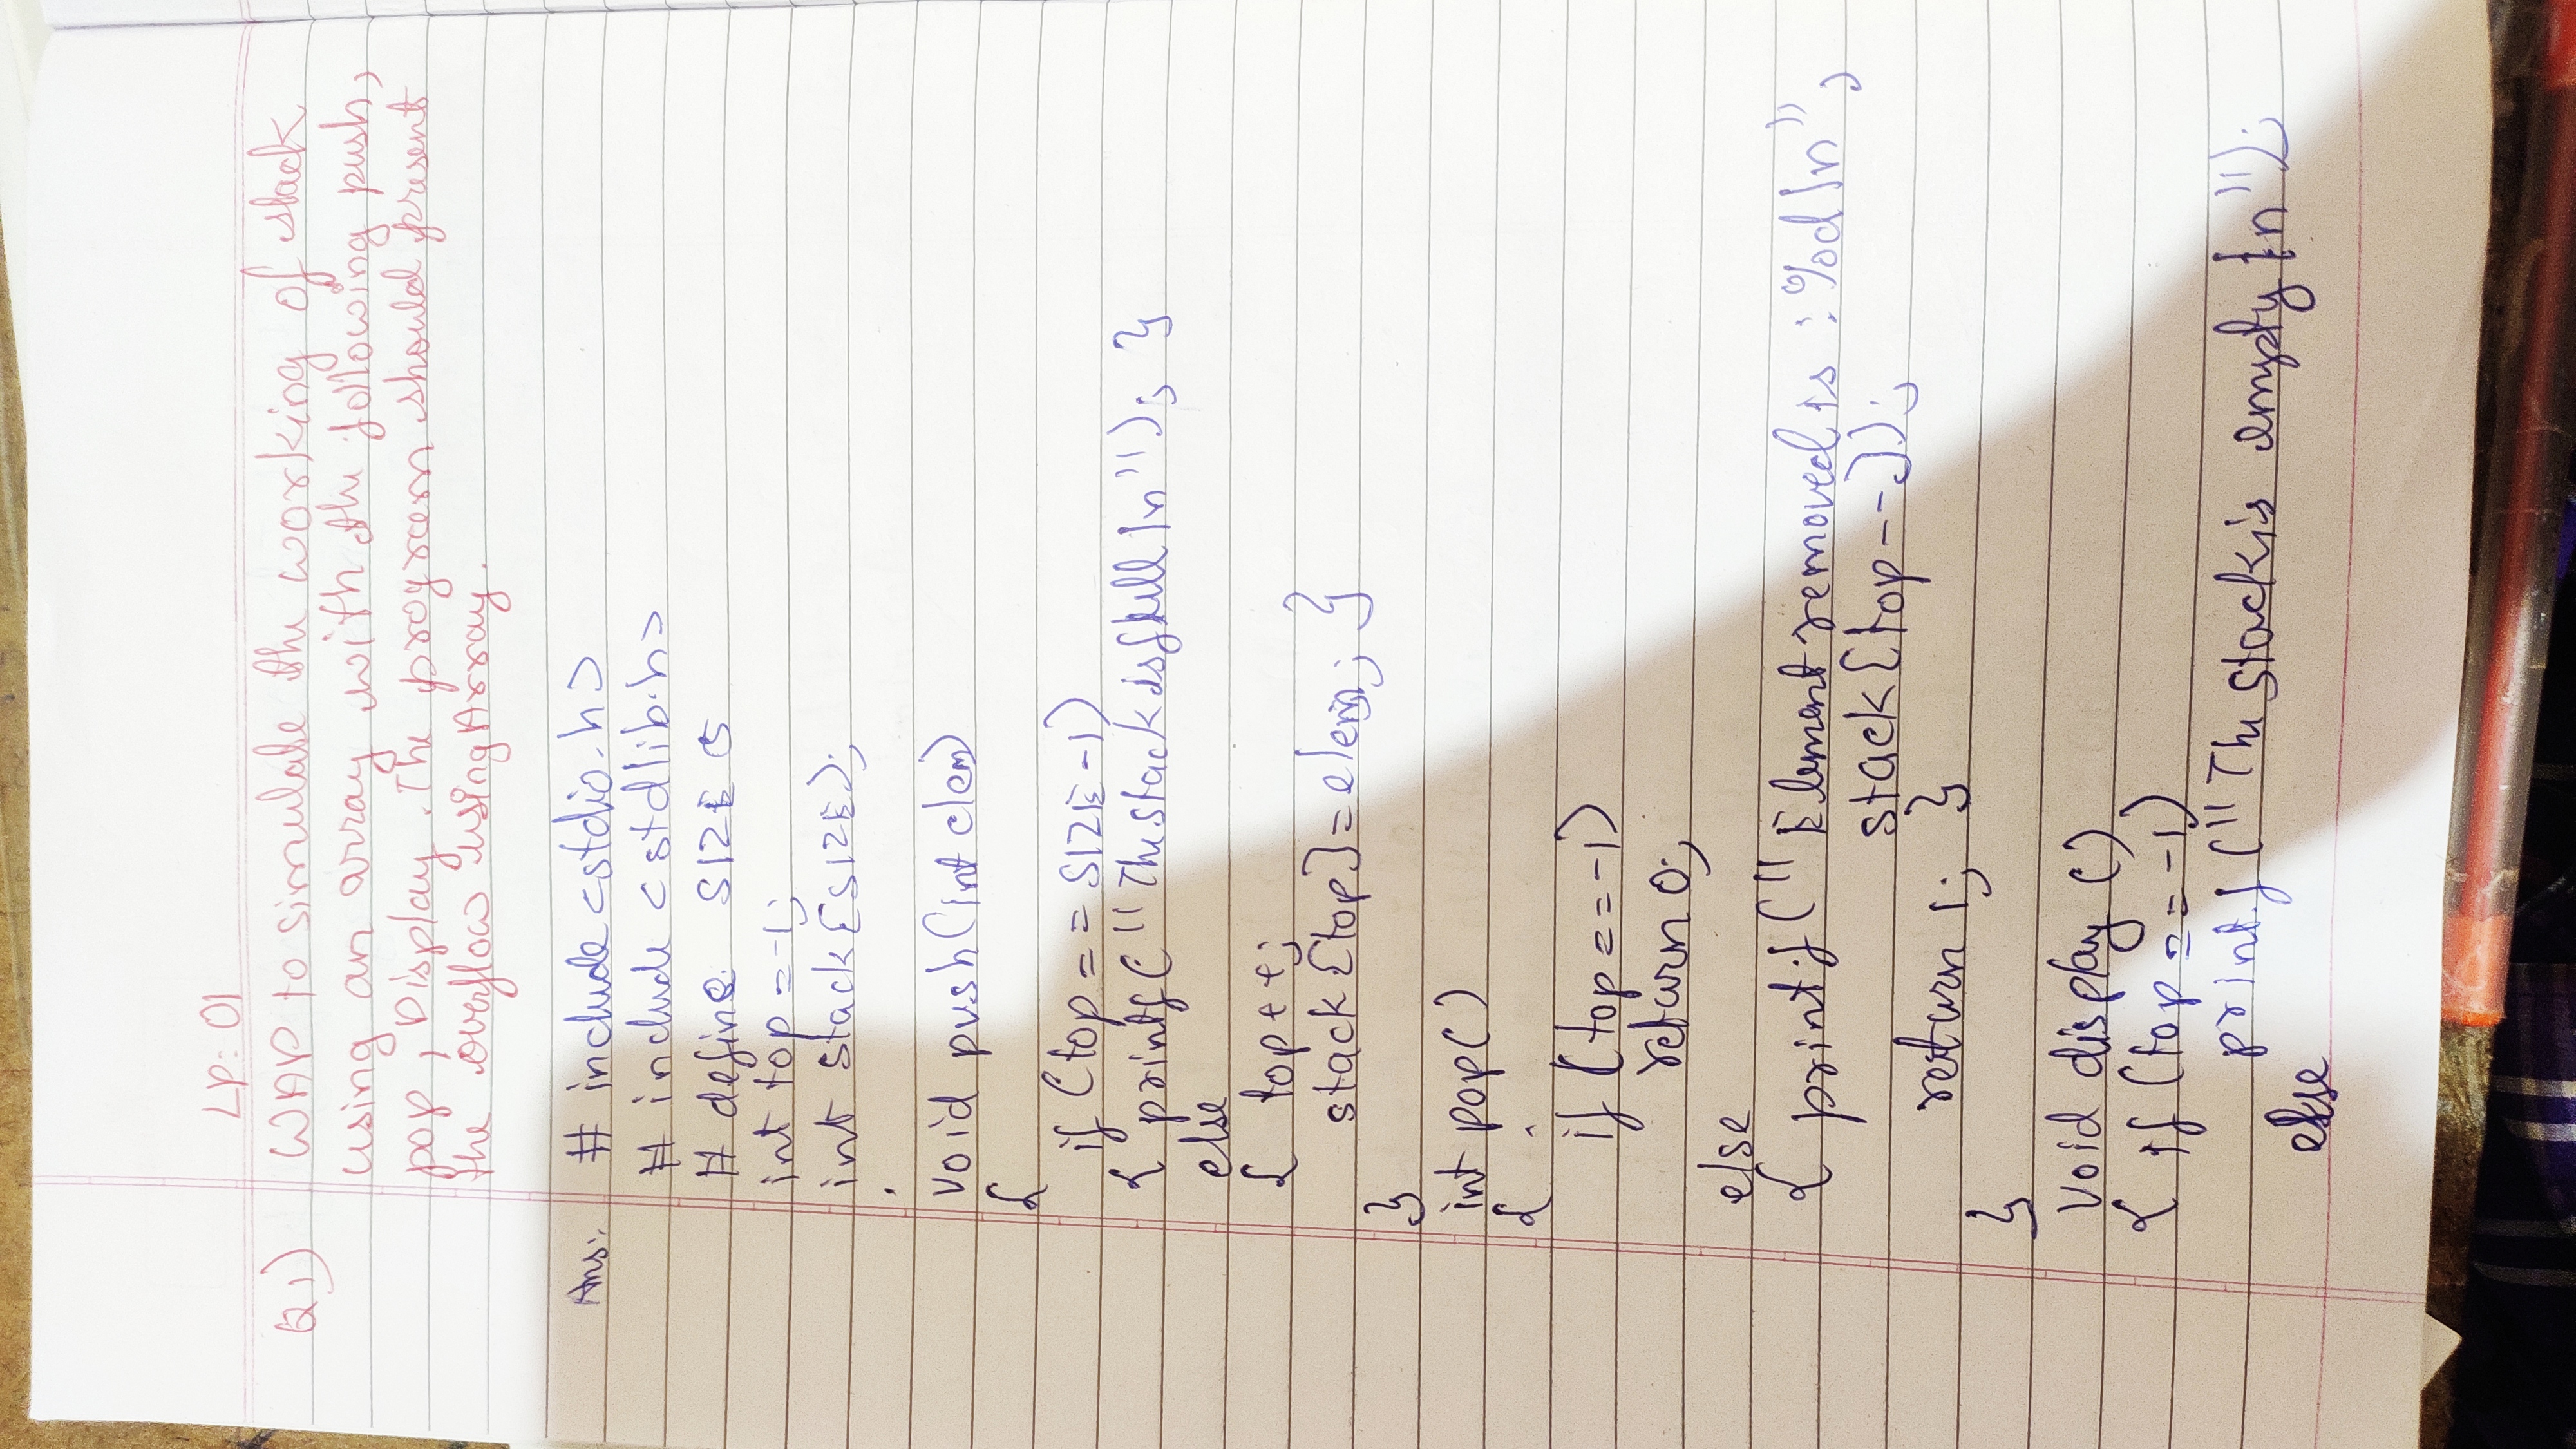 LP: 01
Q1) WAP to simulate the working of stack
using an array with the following push,
pop, Display. The program should present
the overflow using Array.
Ans:. # include <stdio.h>
# include <stdlib.h>
# define SIZE 5
int top = -1;
int stack [SIZE];
void push (int elem)
{
if (top == SIZE -1)
{ printf ("The stack is full \n"); }
else
{ top++;
stack [top] = elem; }
}
int pop()
{
if (top == -1)
return 0;
else
{ printf ("Element removed is : %d \n",
stack [top--]);
return 1; }
}
void display ()
{ if (top == -1)
printf ("The stack is empty \n");
else